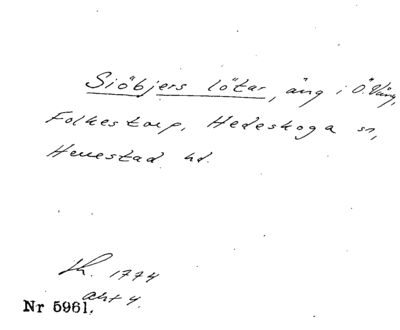 Siöbjers lötar, äng i Ö. Vång,
Folkestorp, Hedeskoga sn,
Herrestad hd.
Sk. 1774
akt 4.
Nr 5961.